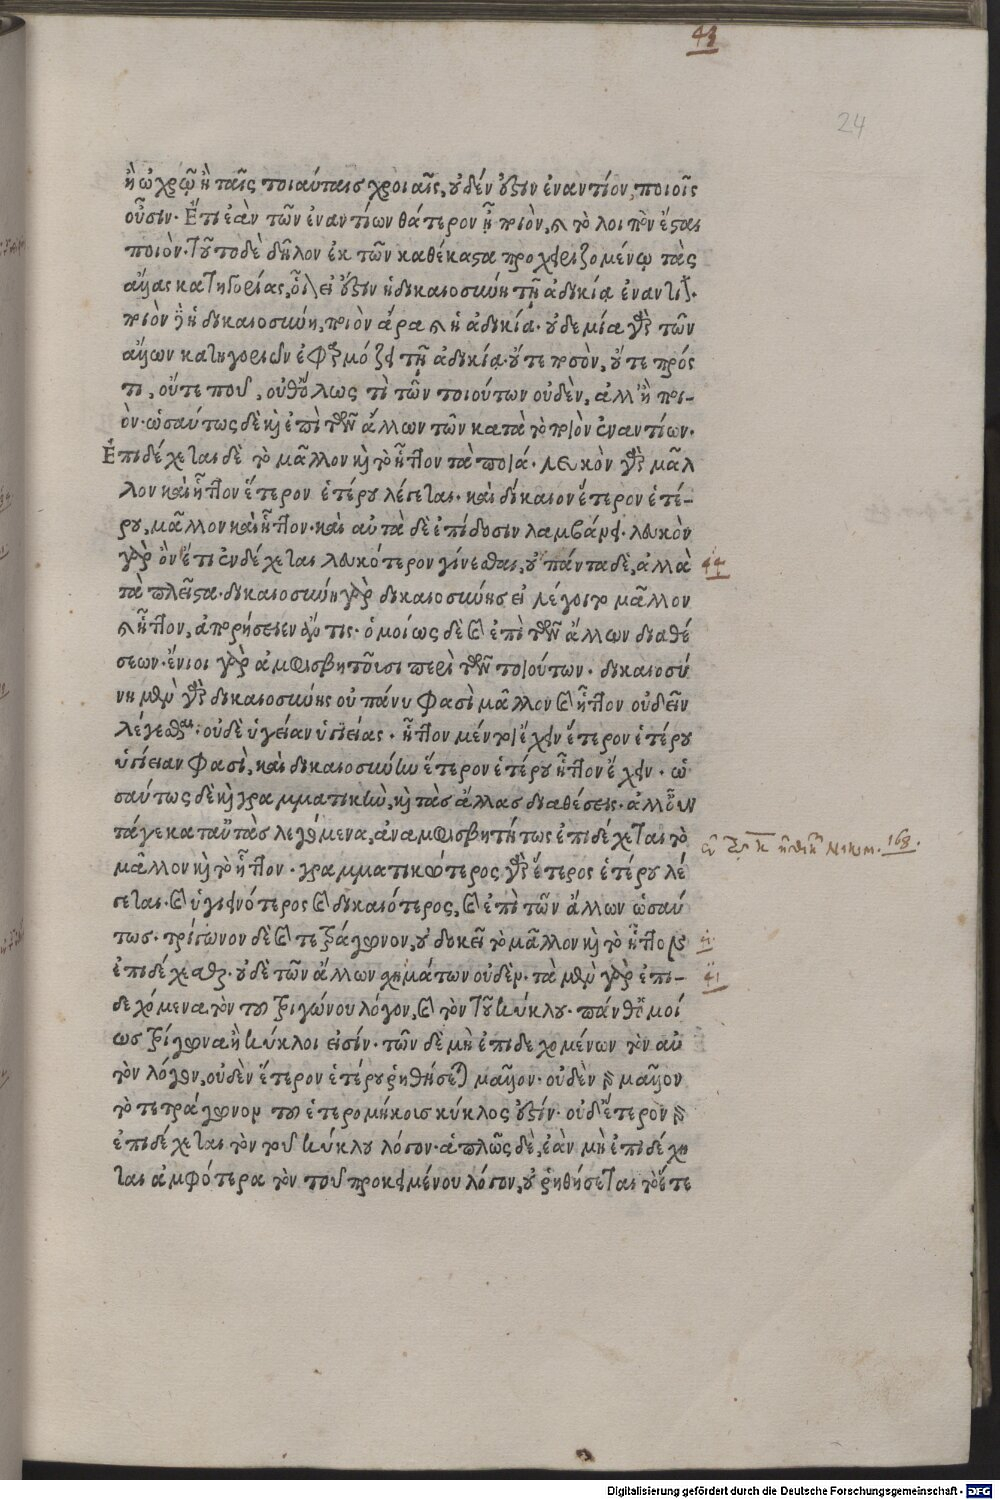 43
24
ἢ ὠχρῷ ἢ ταῖς τοιαύταις χροιαῖς, οὐδέν ἐστιν ἐναντίον, ποιοῖς
οὖσιν. Ἔτι ἐὰν τῶν ἐναντίων θάτερον ᾖ ποιὸν, καὶ τὸ λοιπὸν ἔσται
ποιόν. Τοῦτο δὲ δῆλον ἐκ τῶν καθέκαστα προχειριζομένῳ τὰς
ἄλλας κατηγορίας, οἷον εἰ ἔστιν ἡ δικαιοσύνη τῇ ἀδικίᾳ ἐναντίον.
ποιὸν δὲ ἡ δικαιοσύνη, ποιὸν ἄρα καὶ ἡ ἀδικία. οὐδεμία γὰρ τῶν
ἄλλων κατηγοριῶν ἐφαρμόζει τῇ ἀδικίᾳ. οὔτε ποσὸν, οὔτε πρός
τι, οὔτε ποῦ, οὐθ' ὅλως τὶ τῶν τοιούτων οὐδὲν, ἀλλ' ἢ ποι-
όν. ὡσαύτως δὲ καὶ ἐπὶ τῶν ἄλλων τῶν κατὰ τὸ ποιὸν ἐναντίων.
Ἐπιδέχεται δὲ τὸ μᾶλλον καὶ τὸ ἧττον τὰ ποιά. λευκὸν γὰρ μᾶλ
λον καὶ ἧττον ἕτερον ἑτέρου λέγεται. καὶ δίκαιον ἕτερον ἑτέ-
ρου, μᾶλλον καὶ ἧττον. καὶ αὐτὰ δὲ ἐπίδοσιν λαμβάνει. λευκὸν
γὰρ ὂν ἔτι ἐνδέχεται λευκότερον γίνεσθαι, οὐ πάντα δὲ, ἀλλὰ
44
τὰ πλεῖστα. δικαιοσύνη γὰρ δικαιοσύνης εἰ λέγοιτο μᾶλλον
καὶ ἧττον, ἀπορήσειεν ἄν τις. ὁμοίως δὲ καὶ ἐπὶ τῶν ἄλλων διαθέ
σεων. ἔνιοι γὰρ ἀμφισβητοῦσι περὶ τῶν τοιούτων. δικαιοσύ
νη μὲν γὰρ δικαιοσύνης οὐ πάνυ φασὶ μᾶλλον καὶ ἧττον οὐδεῖν
λέγεσθαι. οὐδὲ ὑγείαν ὑγιείας. ἧττον μέντοι ἔχειν ἕτερον ἑτέρου
ὑγίειαν φασὶ, καὶ δικαιοσύνην ἕτερον ἑτέρου ἧττον ἔχειν. ὡ
σαύτως δὲ καὶ γραμματικὴν, καὶ τὰς ἄλλας διαθέσεις. ἀλλ' οὖν
τάγε κατ' αὐτὰς λεγόμενα, ἀναμφισβητήτως ἐπιδέχεται τὸ
μᾶλλον καὶ τὸ ἧττον. γραμματικώτερος γὰρ ἕτερος ἑτέρου λέ
γεται. καὶ ὑγιεινότερος καὶ δικαιότερος, καὶ ἐπὶ τῶν ἄλλων ὡσαύ
τως. τρίγωνον δὲ καὶ τετράγωνον, οὐ δοκεῖ τὸ μᾶλλον καὶ τὸ ἧττον
ἐπιδέχεσθαι. οὐδὲ τῶν ἄλλων σχημάτων οὐδέν. τὰ μὲν γὰρ ἐπι-
41
δεχόμενα τὸν τοῦ τριγώνου λόγον, καὶ τὸν τοῦ κύκλου. πάνθ' ὁμοί
ως τρίγωνα ἢ κύκλοι εἰσίν. τῶν δὲ μὴ ἐπιδεχομένων τὸν αὐ
τὸν λόγον, οὐδὲν ἕτερον ἑτέρου ῥηθήσεται μᾶλλον. οὐδὲν γὰρ μᾶλλον
τὸ τετράγωνον τοῦ ἑτερομήκοις κύκλος ἐστίν. οὐδέτερον γὰρ
ἐπιδέχεται τὸν τοῦ κύκλου λόγον. ἁπλῶς δὲ, ἐὰν μὴ ἐπιδέχη
ται ἀμφότερα τὸν τοῦ προκειμένου λόγον, οὐ ῥηθήσεται τὸ ἕτε
Digitalisierung gefördert durch die Deutsche Forschungsgemeinschaft - DFG